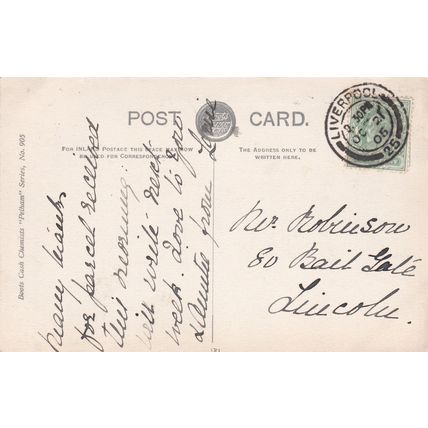 POST CARD.
FOR INLAND POSTAGE THIS SPACE MAY NOW
BE USED FOR CORRESPONDENCE.
THE ADDRESS ONLY TO BE
WRITTEN HERE.
Boots Cash Chemists "Pelham" Series, No. 905
LIVERPOOL
OC 21
05
25
Many thanks
for parcel received
this morning
will write next
week
from
Mr. Robinson
80 Bail Gate
Lincoln.